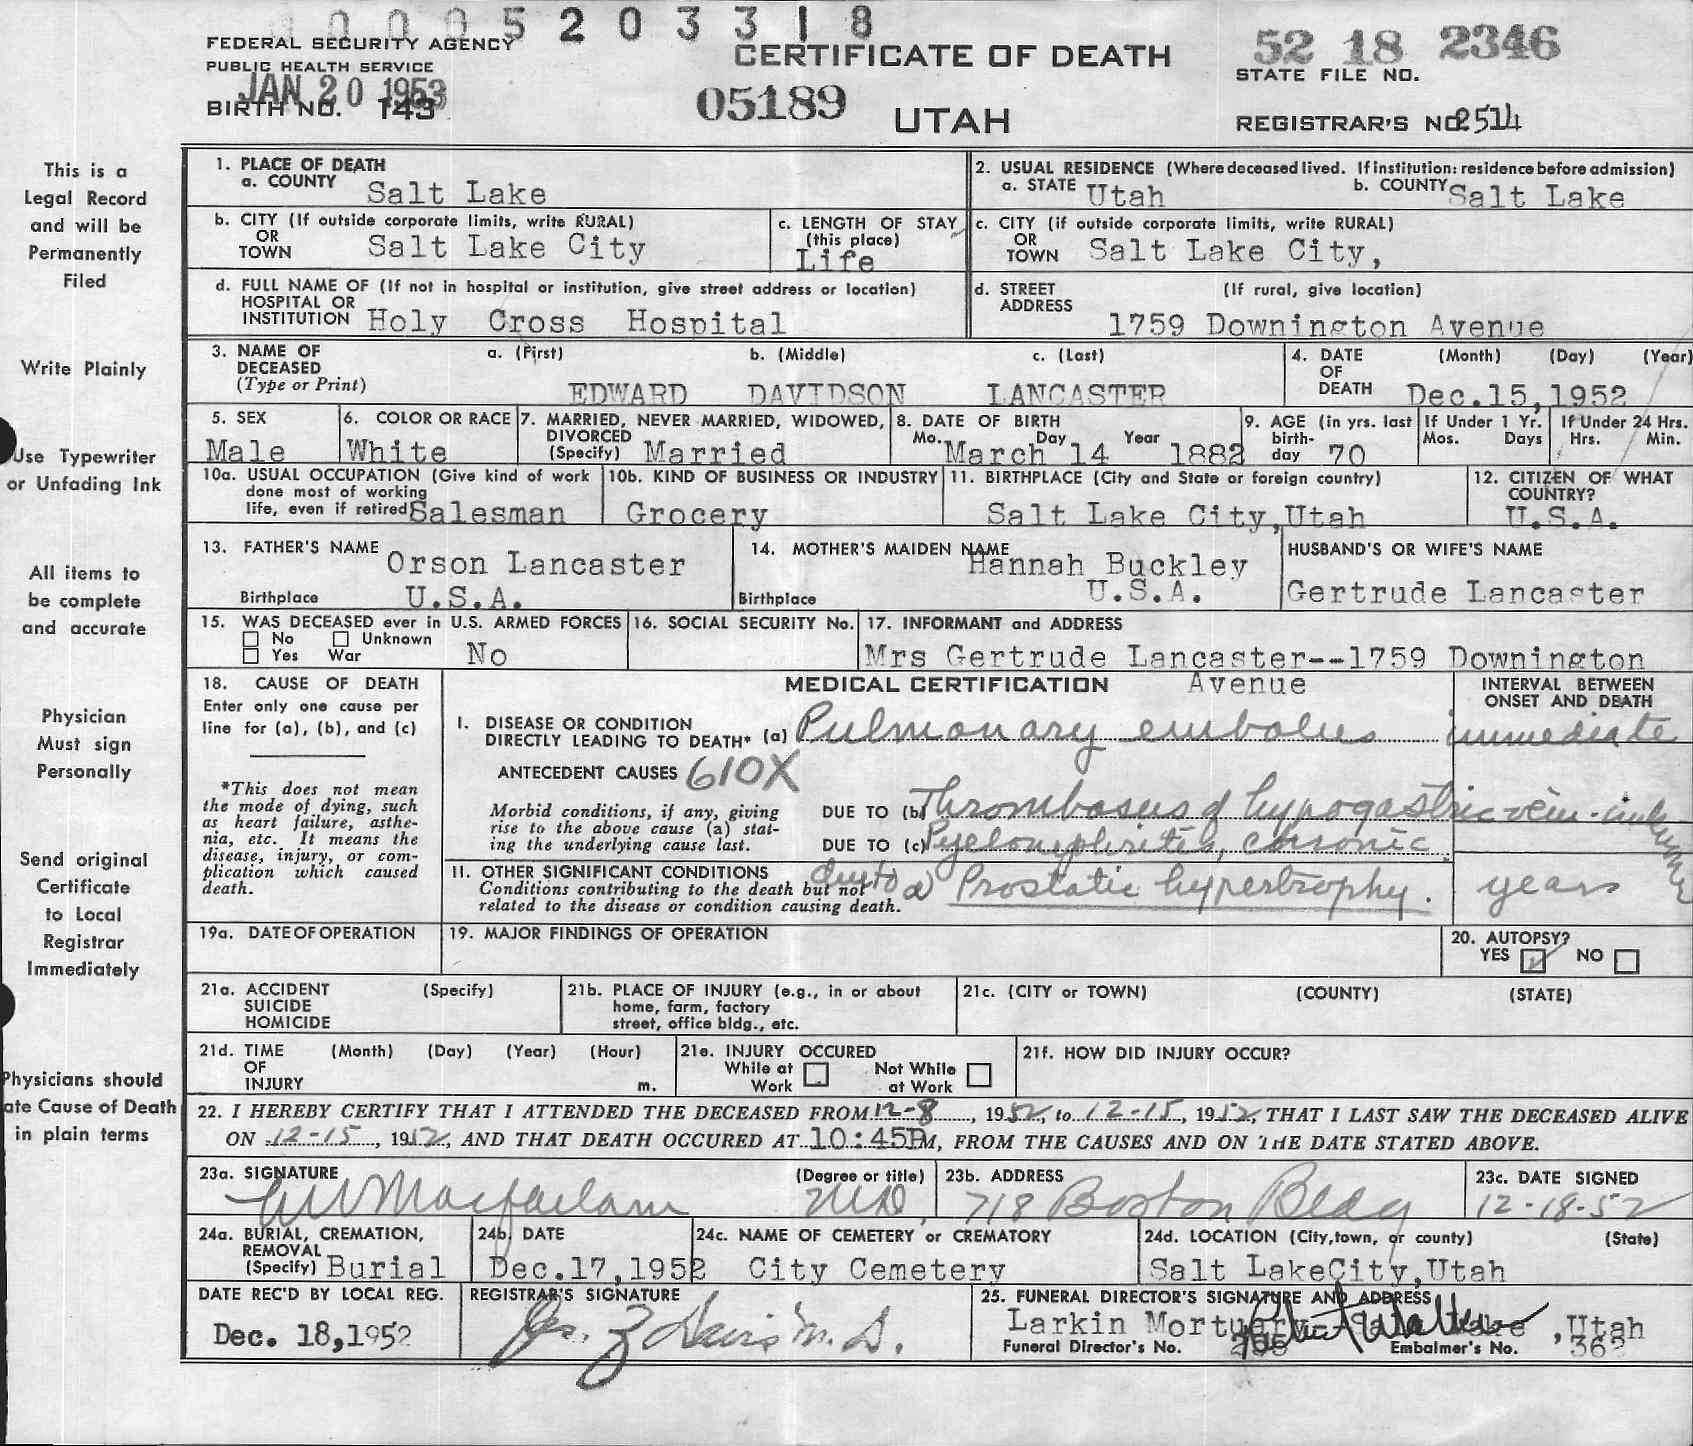 0 0 0 5 2 0 3 3 1 8
FEDERAL SECURITY AGENCY
PUBLIC HEALTH SERVICE
JAN 20 1953
BIRTH NO. 143
CERTIFICATE OF DEATH
05189 UTAH
52 18 2346
STATE FILE NO.
REGISTRAR'S NO. 2514
This is a
Legal Record
and will be
Permanently
Filed
Write Plainly
Use Typewriter
or Unfading Ink
All items to
be complete
and accurate
Physician
Must sign
Personally
Send original
Certificate
to Local
Registrar
Immediately
Physicians should
ate Cause of Death
in plain terms
1. PLACE OF DEATH
a. COUNTY Salt Lake
2. USUAL RESIDENCE (Where deceased lived. If institution: residence before admission)
a. STATE Utah b. COUNTY Salt Lake
b. CITY (If outside corporate limits, write RURAL)
OR
TOWN Salt Lake City
c. LENGTH OF STAY
(this place)
Life
c. CITY (if outside corporate limits, write RURAL)
OR
TOWN Salt Lake City,
d. FULL NAME OF (If not in hospital or institution, give street address or location)
HOSPITAL OR
INSTITUTION Holy Cross Hospital
d. STREET (If rural, give location)
ADDRESS
1759 Downington Avenue
3. NAME OF a. (First) b. (Middle) c. (Last)
DECEASED
(Type or Print) EDWARD DAVIDSON LANCASTER
4. DATE (Month) (Day) (Year)
OF
DEATH Dec.15,1952
5. SEX
Male
6. COLOR OR RACE
White
7. MARRIED, NEVER MARRIED, WIDOWED,
DIVORCED
(Specify) Married
8. DATE OF BIRTH
Mo. Day Year
March 14 1882
9. AGE (in yrs. last
birth-
day 70
If Under 1 Yr.
Mos. Days
If Under 24 Hrs.
Hrs. Min.
10a. USUAL OCCUPATION (Give kind of work
done most of working
life, even if retired Salesman
10b. KIND OF BUSINESS OR INDUSTRY
Grocery
11. BIRTHPLACE (City and State or foreign country)
Salt Lake City,Utah
12. CITIZEN OF WHAT
COUNTRY?
U.S.A.
13. FATHER'S NAME Orson Lancaster
Birthplace U.S.A.
14. MOTHER'S MAIDEN NAME Hannah Buckley
Birthplace U.S.A.
HUSBAND'S OR WIFE'S NAME
Gertrude Lancaster
15. WAS DECEASED ever in U.S. ARMED FORCES
No Unknown
Yes War No
16. SOCIAL SECURITY No.
17. INFORMANT and ADDRESS
Mrs Gertrude Lancaster--1759 Downington
Avenue
18. CAUSE OF DEATH
Enter only one cause per
line for (a), (b), and (c)
*This does not mean
the mode of dying, such
as heart failure, asthe-
nia, etc. It means the
disease, injury, or com-
plication which caused
death.
MEDICAL CERTIFICATION
INTERVAL BETWEEN
ONSET AND DEATH
I. DISEASE OR CONDITION
DIRECTLY LEADING TO DEATH* (a) Pulmonary embolus immediate
ANTECEDENT CAUSES 610X
Morbid conditions, if any, giving
rise to the above cause (a) stat-
ing the underlying cause last.
DUE TO (b) Thrombosus of hypogastric vein -
DUE TO (c) Pyelonephritis, chronic
II. OTHER SIGNIFICANT CONDITIONS
Conditions contributing to the death but not
related to the disease or condition causing death.
due to d Prostatic hypertrophy. years
19a. DATE OF OPERATION
19. MAJOR FINDINGS OF OPERATION
20. AUTOPSY?
YES NO
21a. ACCIDENT (Specify)
SUICIDE
HOMICIDE
21b. PLACE OF INJURY (e.g., in or about
home, farm, factory
street, office bldg., etc.
21c. (CITY or TOWN) (COUNTY) (STATE)
21d. TIME (Month) (Day) (Year) (Hour)
OF
INJURY m.
21e. INJURY OCCURED
While at Not While
Work at Work
21f. HOW DID INJURY OCCUR?
22. I HEREBY CERTIFY THAT I ATTENDED THE DECEASED FROM 12-8, 1952, to 12-15, 1952, THAT I LAST SAW THE DECEASED ALIVE
ON 12-15, 1952, AND THAT DEATH OCCURED AT 10:45PM, FROM THE CAUSES AND ON THE DATE STATED ABOVE.
23a. SIGNATURE (Degree or title)
Macfarlane MD.
23b. ADDRESS
718 Boston Bldg
23c. DATE SIGNED
12-18-52
24a. BURIAL, CREMATION,
REMOVAL
(Specify) Burial
24b. DATE
Dec.17,1952
24c. NAME OF CEMETERY or CREMATORY
City Cemetery
24d. LOCATION (City,town, or county) (State)
Salt LakeCity,Utah
DATE REC'D BY LOCAL REG.
Dec. 18,1952
REGISTRAR'S SIGNATURE
Davis M.D.
25. FUNERAL DIRECTOR'S SIGNATURE AND ADDRESS
Larkin Mortuary- Salt Lake ,Utah
Funeral Director's No. Embalmer's No. 362